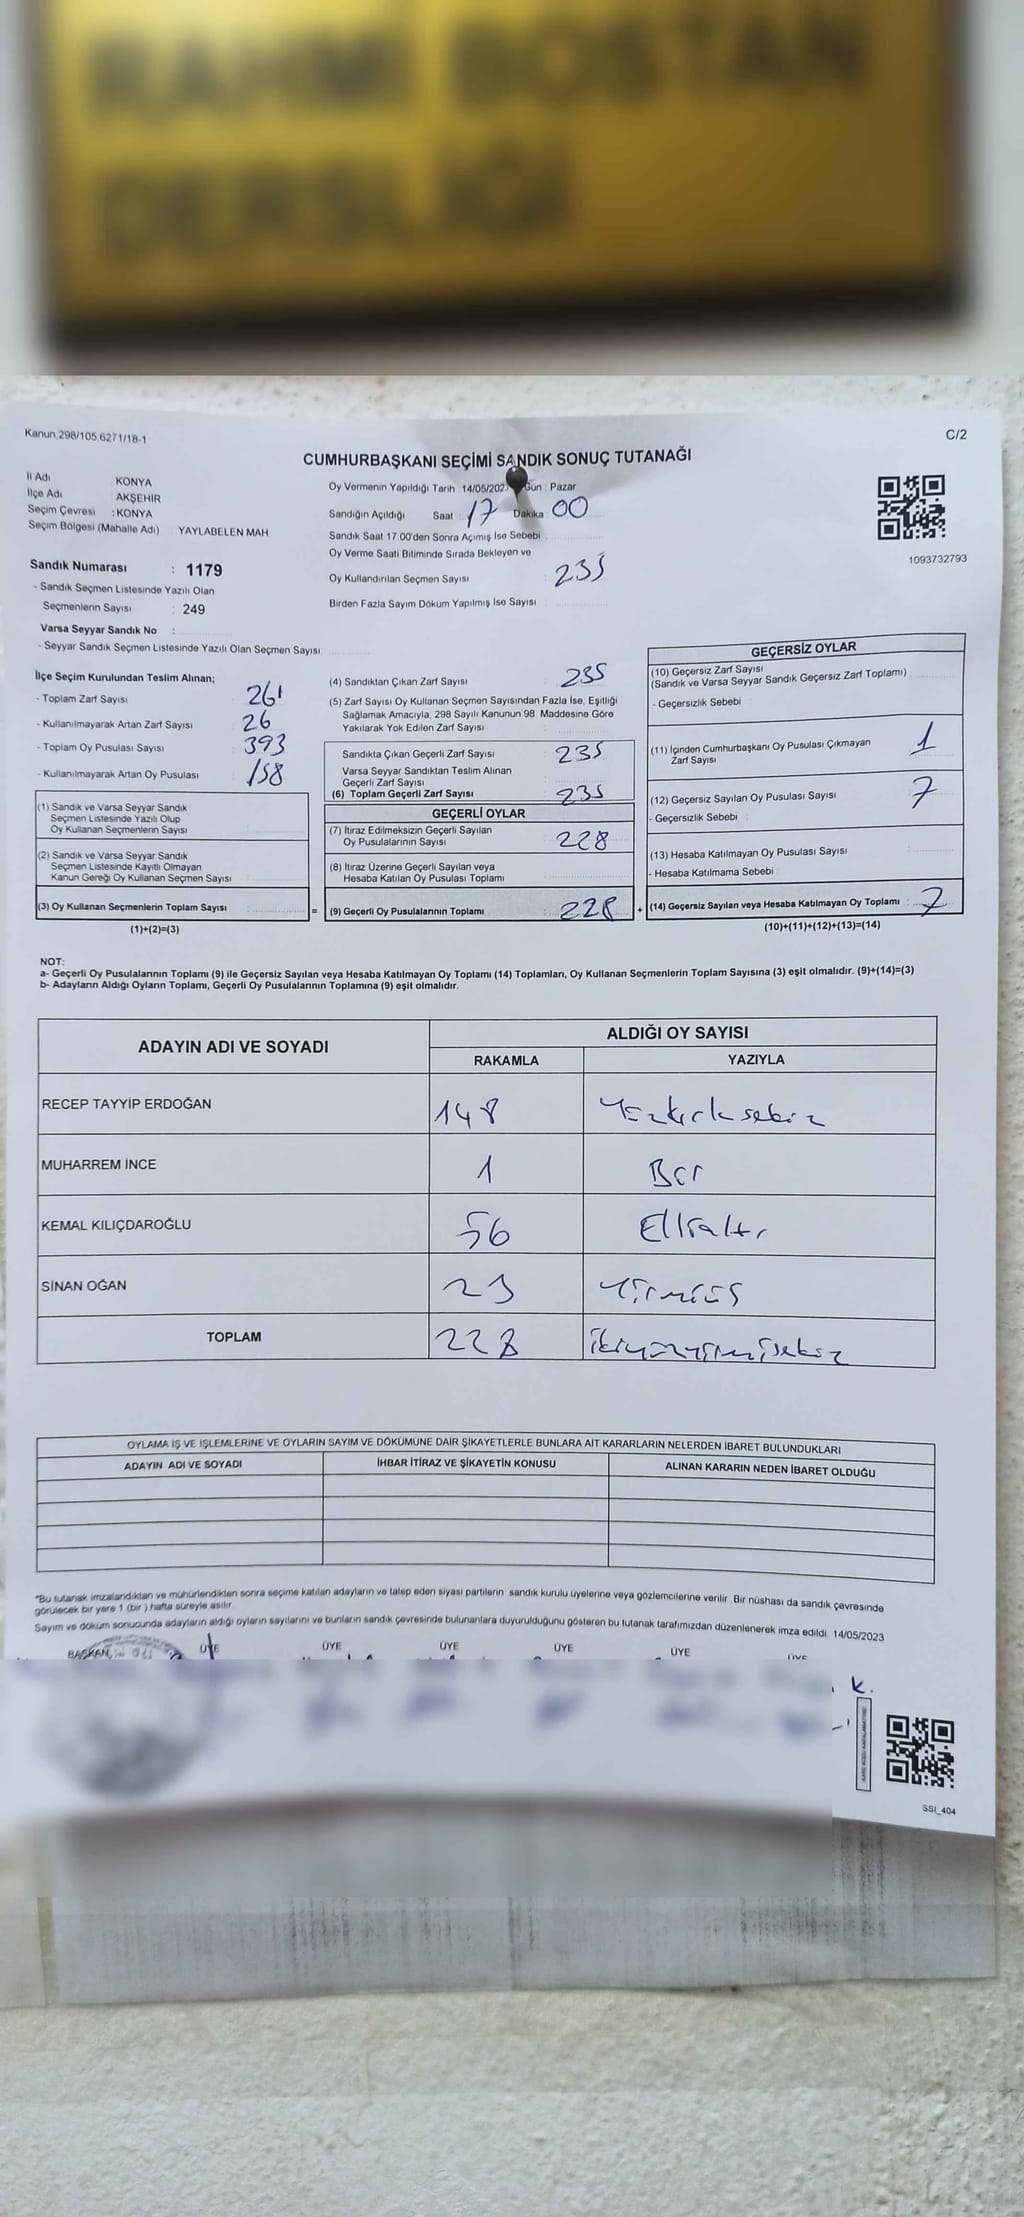 RAHMİ BOSTAN
DERSLİĞİ
Kanun.298/105,6271/18-1
C/2
CUMHURBAŞKANI SEÇİMİ SANDIK SONUÇ TUTANAĞI
İl Adı KONYA
İlçe Adı AKŞEHİR
Seçim Çevresi : KONYA
Seçim Bölgesi (Mahalle Adı) : YAYLABELEN MAH
Oy Vermenin Yapıldığı Tarih :14/05/2023 Gün : Pazar
Sandığın Açıldığı Saat : 17 Dakika : 00
Sandık Saat 17.00'den Sonra Açmış İse Sebebi :
Oy Verme Saati Bitiminde Sırada Bekleyen ve
Oy Kullandırılan Seçmen Sayısı 235
Birden Fazla Sayım Döküm Yapılmış İse Sayısı :
1093732793
Sandık Numarası : 1179
- Sandık Seçmen Listesinde Yazılı Olan
Seçmenlerin Sayısı : 249
Varsa Seyyar Sandık No :
- Seyyar Sandık Seçmen Listesinde Yazılı Olan Seçmen Sayısı
İlçe Seçim Kurulundan Teslim Alınan;
- Toplam Zarf Sayısı 261
- Kullanılmayarak Artan Zarf Sayısı 26
- Toplam Oy Pusulası Sayısı 393
- Kullanılmayarak Artan Oy Pusulası 158
(1) Sandık ve Varsa Seyyar Sandık
Seçmen Listesinde Yazılı Olup
Oy Kullanan Seçmenlerin Sayısı
(2) Sandık ve Varsa Seyyar Sandık
Seçmen Listesinde Kayıtlı Olmayan
Kanun Gereği Oy Kullanan Seçmen Sayısı
(3) Oy Kullanan Seçmenlerin Toplam Sayısı :
=
(1)+(2)=(3)
(4) Sandıktan Çıkan Zarf Sayısı 235
(5) Zarf Sayısı Oy Kullanan Seçmen Sayısından Fazla İse, Eşitliği
Sağlamak Amacıyla, 298 Sayılı Kanunun 98. Maddesine Göre
Yakılarak Yok Edilen Zarf Sayısı
Sandıkta Çıkan Geçerli Zarf Sayısı 235
Varsa Seyyar Sandıktan Teslim Alınan
Geçerli Zarf Sayısı
(6) Toplam Geçerli Zarf Sayısı 235
GEÇERLİ OYLAR
(7) İtiraz Edilmeksizin Geçerli Sayılan
Oy Pusulalarının Sayısı 228
(8) İtiraz Üzerine Geçerli Sayılan veya
Hesaba Katılan Oy Pusulası Toplamı
(9) Geçerli Oy Pusulalarının Toplamı : 228
+
GEÇERSİZ OYLAR
(10) Geçersiz Zarf Sayısı
(Sandık ve Varsa Seyyar Sandık Geçersiz Zarf Toplamı) :
- Geçersizlik Sebebi :
(11) İçinden Cumhurbaşkanı Oy Pusulası Çıkmayan
Zarf Sayısı 1
(12) Geçersiz Sayılan Oy Pusulası Sayısı 7
- Geçersizlik Sebebi :
(13) Hesaba Katılmayan Oy Pusulası Sayısı
- Hesaba Katılmama Sebebi :
(14) Geçersiz Sayılan veya Hesaba Katılmayan Oy Toplamı : 7
(10)+(11)+(12)+(13)=(14)
NOT:
a- Geçerli Oy Pusulalarının Toplamı (9) ile Geçersiz Sayılan veya Hesaba Katılmayan Oy Toplamı (14) Toplamları, Oy Kullanan Seçmenlerin Toplam Sayısına (3) eşit olmalıdır. (9)+(14)=(3)
b- Adayların Aldığı Oyların Toplamı, Geçerli Oy Pusulalarının Toplamına (9) eşit olmalıdır.
ADAYIN ADI VE SOYADI
ALDIĞI OY SAYISI
RAKAMLA YAZIYLA
RECEP TAYYİP ERDOĞAN 148 Yüzkırksekiz
MUHARREM İNCE 1 Bir
KEMAL KILIÇDAROĞLU 56 Ellialtı
SİNAN OĞAN 23 Yirmiüç
TOPLAM 228 ikiyüzyirmisekiz
OYLAMA İŞ VE İŞLEMLERİNE VE OYLARIN SAYIM VE DÖKÜMÜNE DAİR ŞİKAYETLERLE BUNLARA AİT KARARLARIN NELERDEN İBARET BULUNDUKLARI
ADAYIN ADI VE SOYADI İHBAR İTİRAZ VE ŞİKAYETİN KONUSU ALINAN KARARIN NEDEN İBARET OLDUĞU
*Bu tutanak imzalandıktan ve mühürlendikten sonra seçime katılan adayların ve talep eden siyasi partilerin sandık kurulu üyelerine veya gözlemcilerine verilir. Bir nüshası da sandık çevresinde
görülecek bir yere 1 (bir ) hafta süreyle asılır.
Sayım ve döküm sonucunda adayların aldığı oyların sayılarını ve bunların sandık çevresinde bulunanlara duyurulduğunu gösteren bu tutanak tarafımızdan düzenlenerek imza edildi. 14/05/2023
BAŞKAN ÜYE ÜYE ÜYE ÜYE ÜYE ÜYE
K.
SSI_404